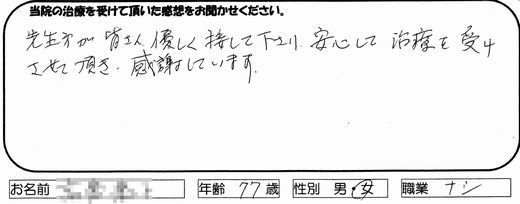 当院の治療を受けて頂いた感想をお聞かせください。
先生方が皆さん優しく接して下さり、安心して治療を受け
させて頂き、感謝しています。
お名前 年齢 77 歳 性別 男・女 職業 ナシ